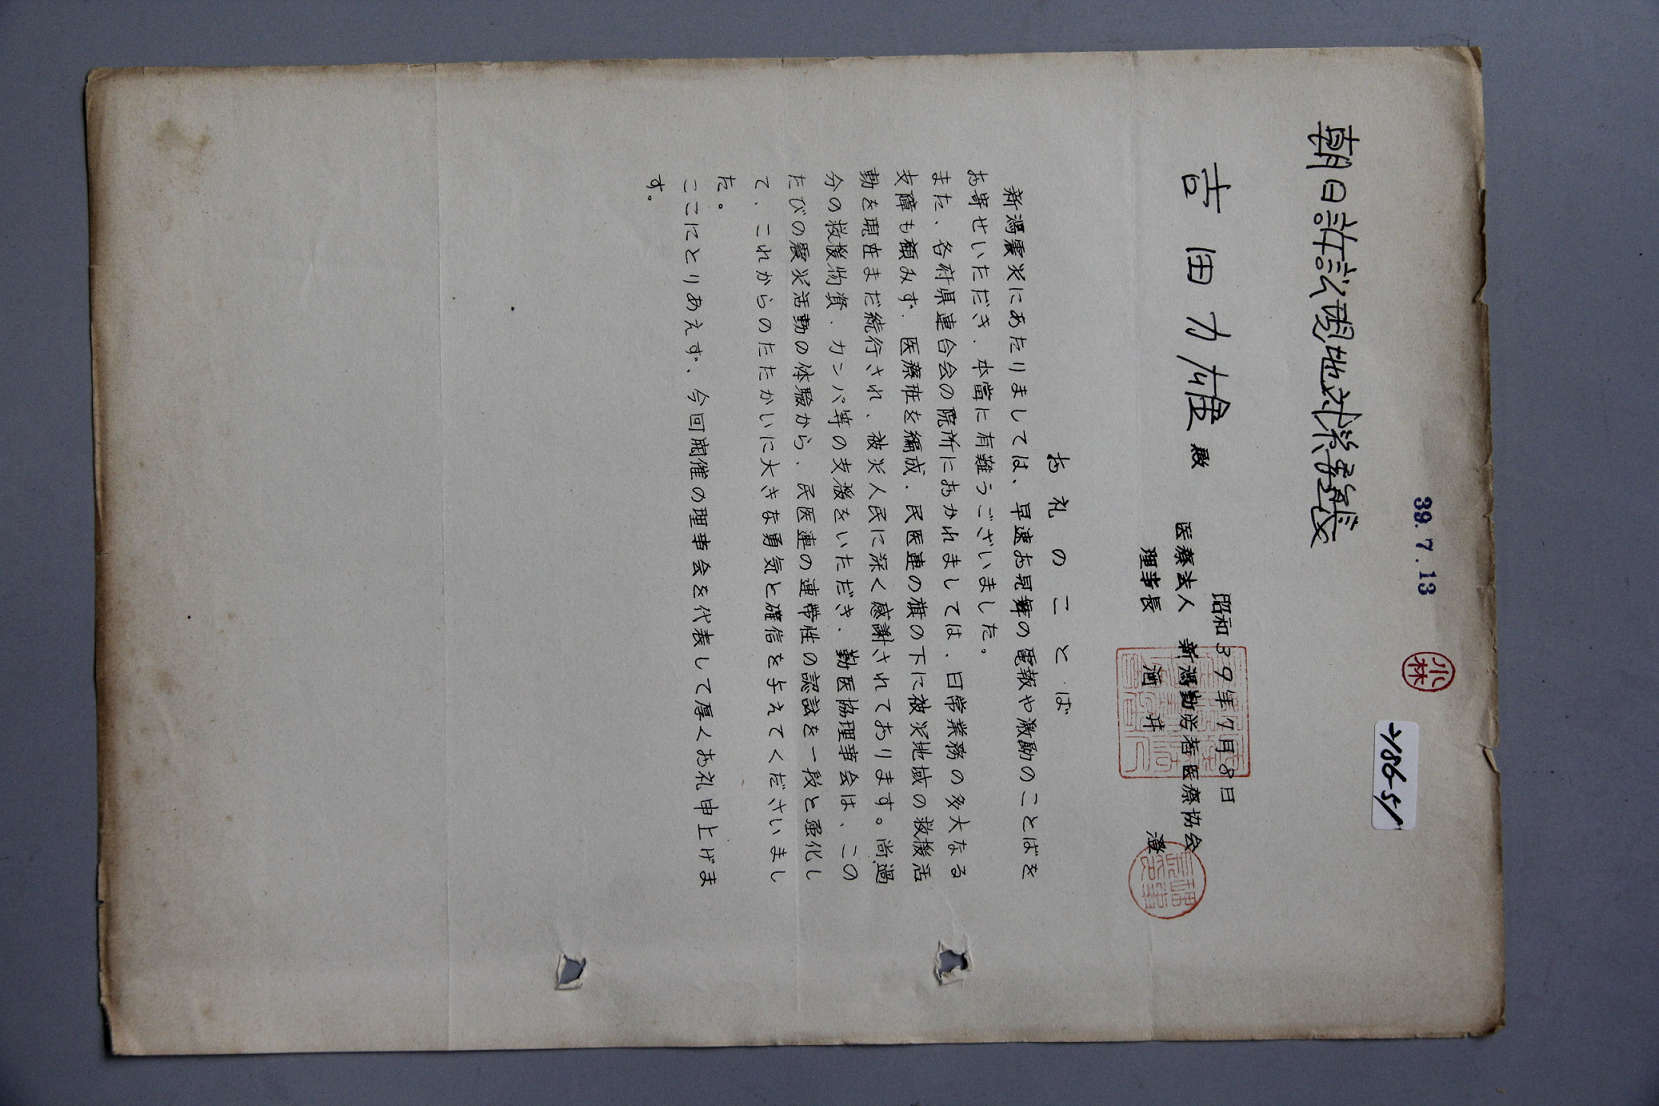 39.7.13
小林
2186-5/1
朝日訴訟現地対策委員会
吉田力雄殿
昭和39年7月8日
医療法人 新潟勤労者医療協会
理事長 酒井 澄
お礼のことば
新潟震災にあたりましては、早速お見舞の電報や激励のことばを
お寄せいただき、本當に有難うございました。
また、各府県連合会の院所におかれましては、日常業務の多大なる
支障も顧みず、医療班を編成、民医連の旗の下に被災地域の救援活
動を現在まだ続行され、被災人民に深く感謝されております。尚過
分の救援物資、カンパ等の支援をいただき、勤医協理事会は、この
たびの震災活動の体験から、民医連の連帯性の認識を一段と強化し
て、これからのたたかいに大きな勇気と確信を与えてくださいまし
た。
ここにとりあえず、今回開催の理事会を代表して厚くお礼申上げま
す。